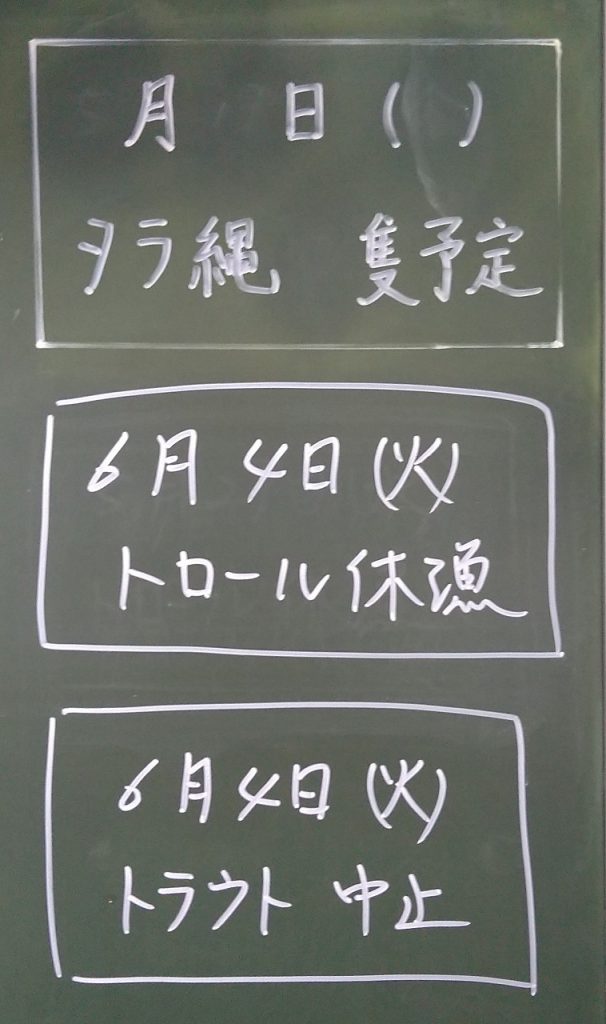 月 日( )
タラ縄 隻予定
6月4日(火)
トロール休漁
6月4日(火)
トラウト 中止